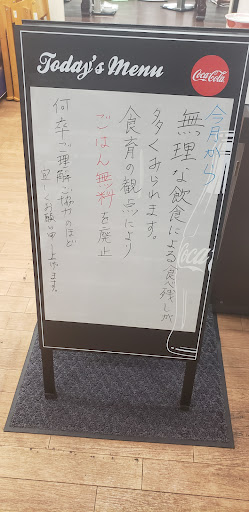 Today's Menu
Coca-Cola
今月から
無理な飲食による食べ残しが
多くあられます。
食育の観点により
ごはん無料を廃止
何卒ご理解ご協力のほど
宜しくお願い申し上げます。